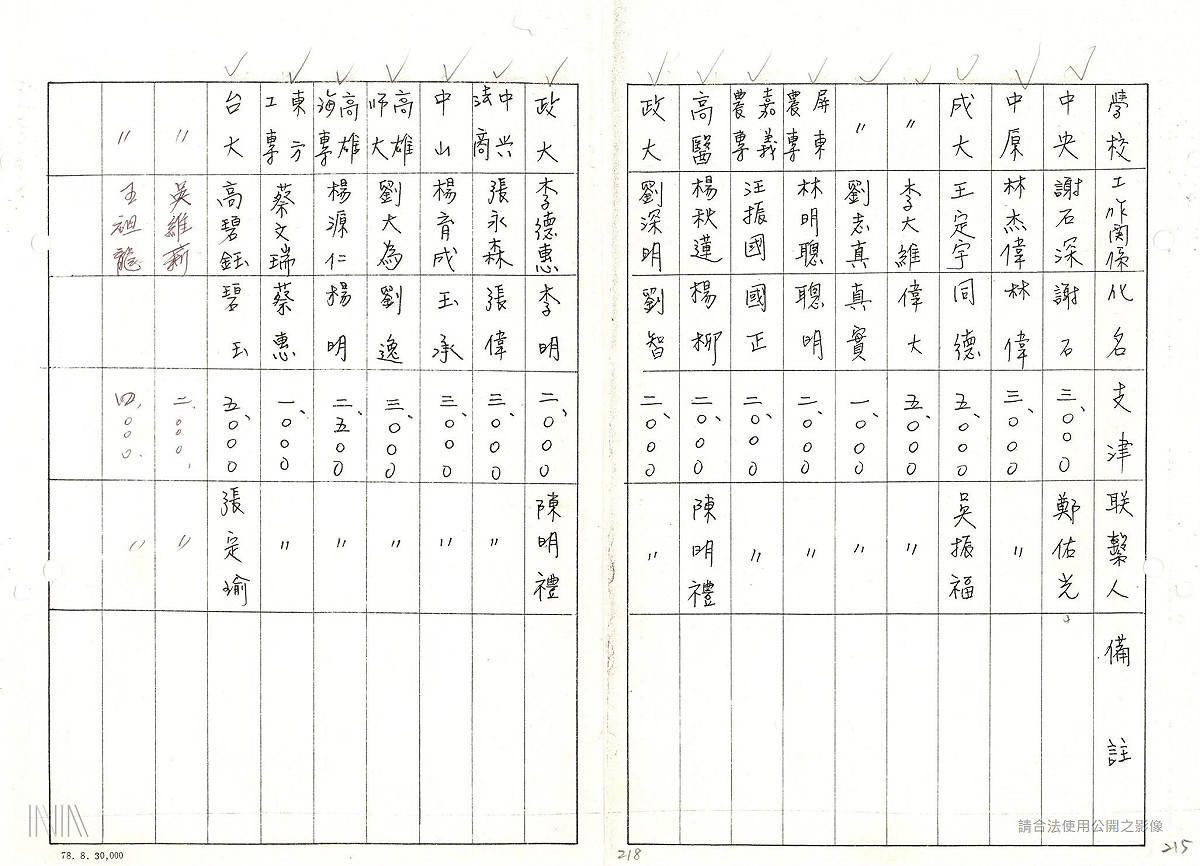 學校 工作関係 化名 支津 联繫人 備註
中央 謝石深 謝石 三、〇〇〇 鄭佑光
中原 林杰偉 林偉 三、〇〇〇 〃
成大 王定宇 同德 五、〇〇〇 吳振福
〃 李大維 偉大 五、〇〇〇 〃
〃 劉志真 真實 一、〇〇〇 〃
屏東農專 林明聰 聰明 二、〇〇〇 〃
嘉義農專 汪振國 國正 二、〇〇〇 〃
高醫 楊秋蓮 楊柳 二、〇〇〇 陳明禮
政大 劉深明 劉智 二、〇〇〇 〃
政大 李德惠 李明 二、〇〇〇 陳明禮
中兴法商 張永森 張偉 三、〇〇〇 〃
中山 楊育成 玉承 三、〇〇〇 〃
高雄師大 劉大為 劉逸 三、〇〇〇 〃
高雄海專 楊源仁 楊明 二、五〇〇 〃
東方工專 蔡文瑞 蔡惠 一、〇〇〇 〃
台大 高碧鈺 碧玉 五、〇〇〇 張定瑜
〃 吳維 二、〇〇〇、 〃
〃 王祖龍 四、〇〇〇、 〃
78. 8. 30,000
218
215
請合法使用公開之影像